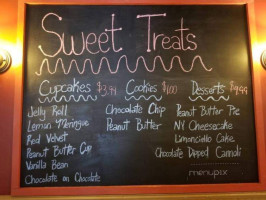 Sweet Treats
Cupcakes $3.99 Cookies $1.00 Desserts $4.99
Jelly Roll Chocolate Chip Peanut Butter Pie
Lemon Meringue Peanut Butter NY Cheesecake
Red Velvet Limoncello Cake
Peanut Butter Cup Chocolate Dipped Cannoli
Vanilla Bean
Chocolate on Chocolate
menupix